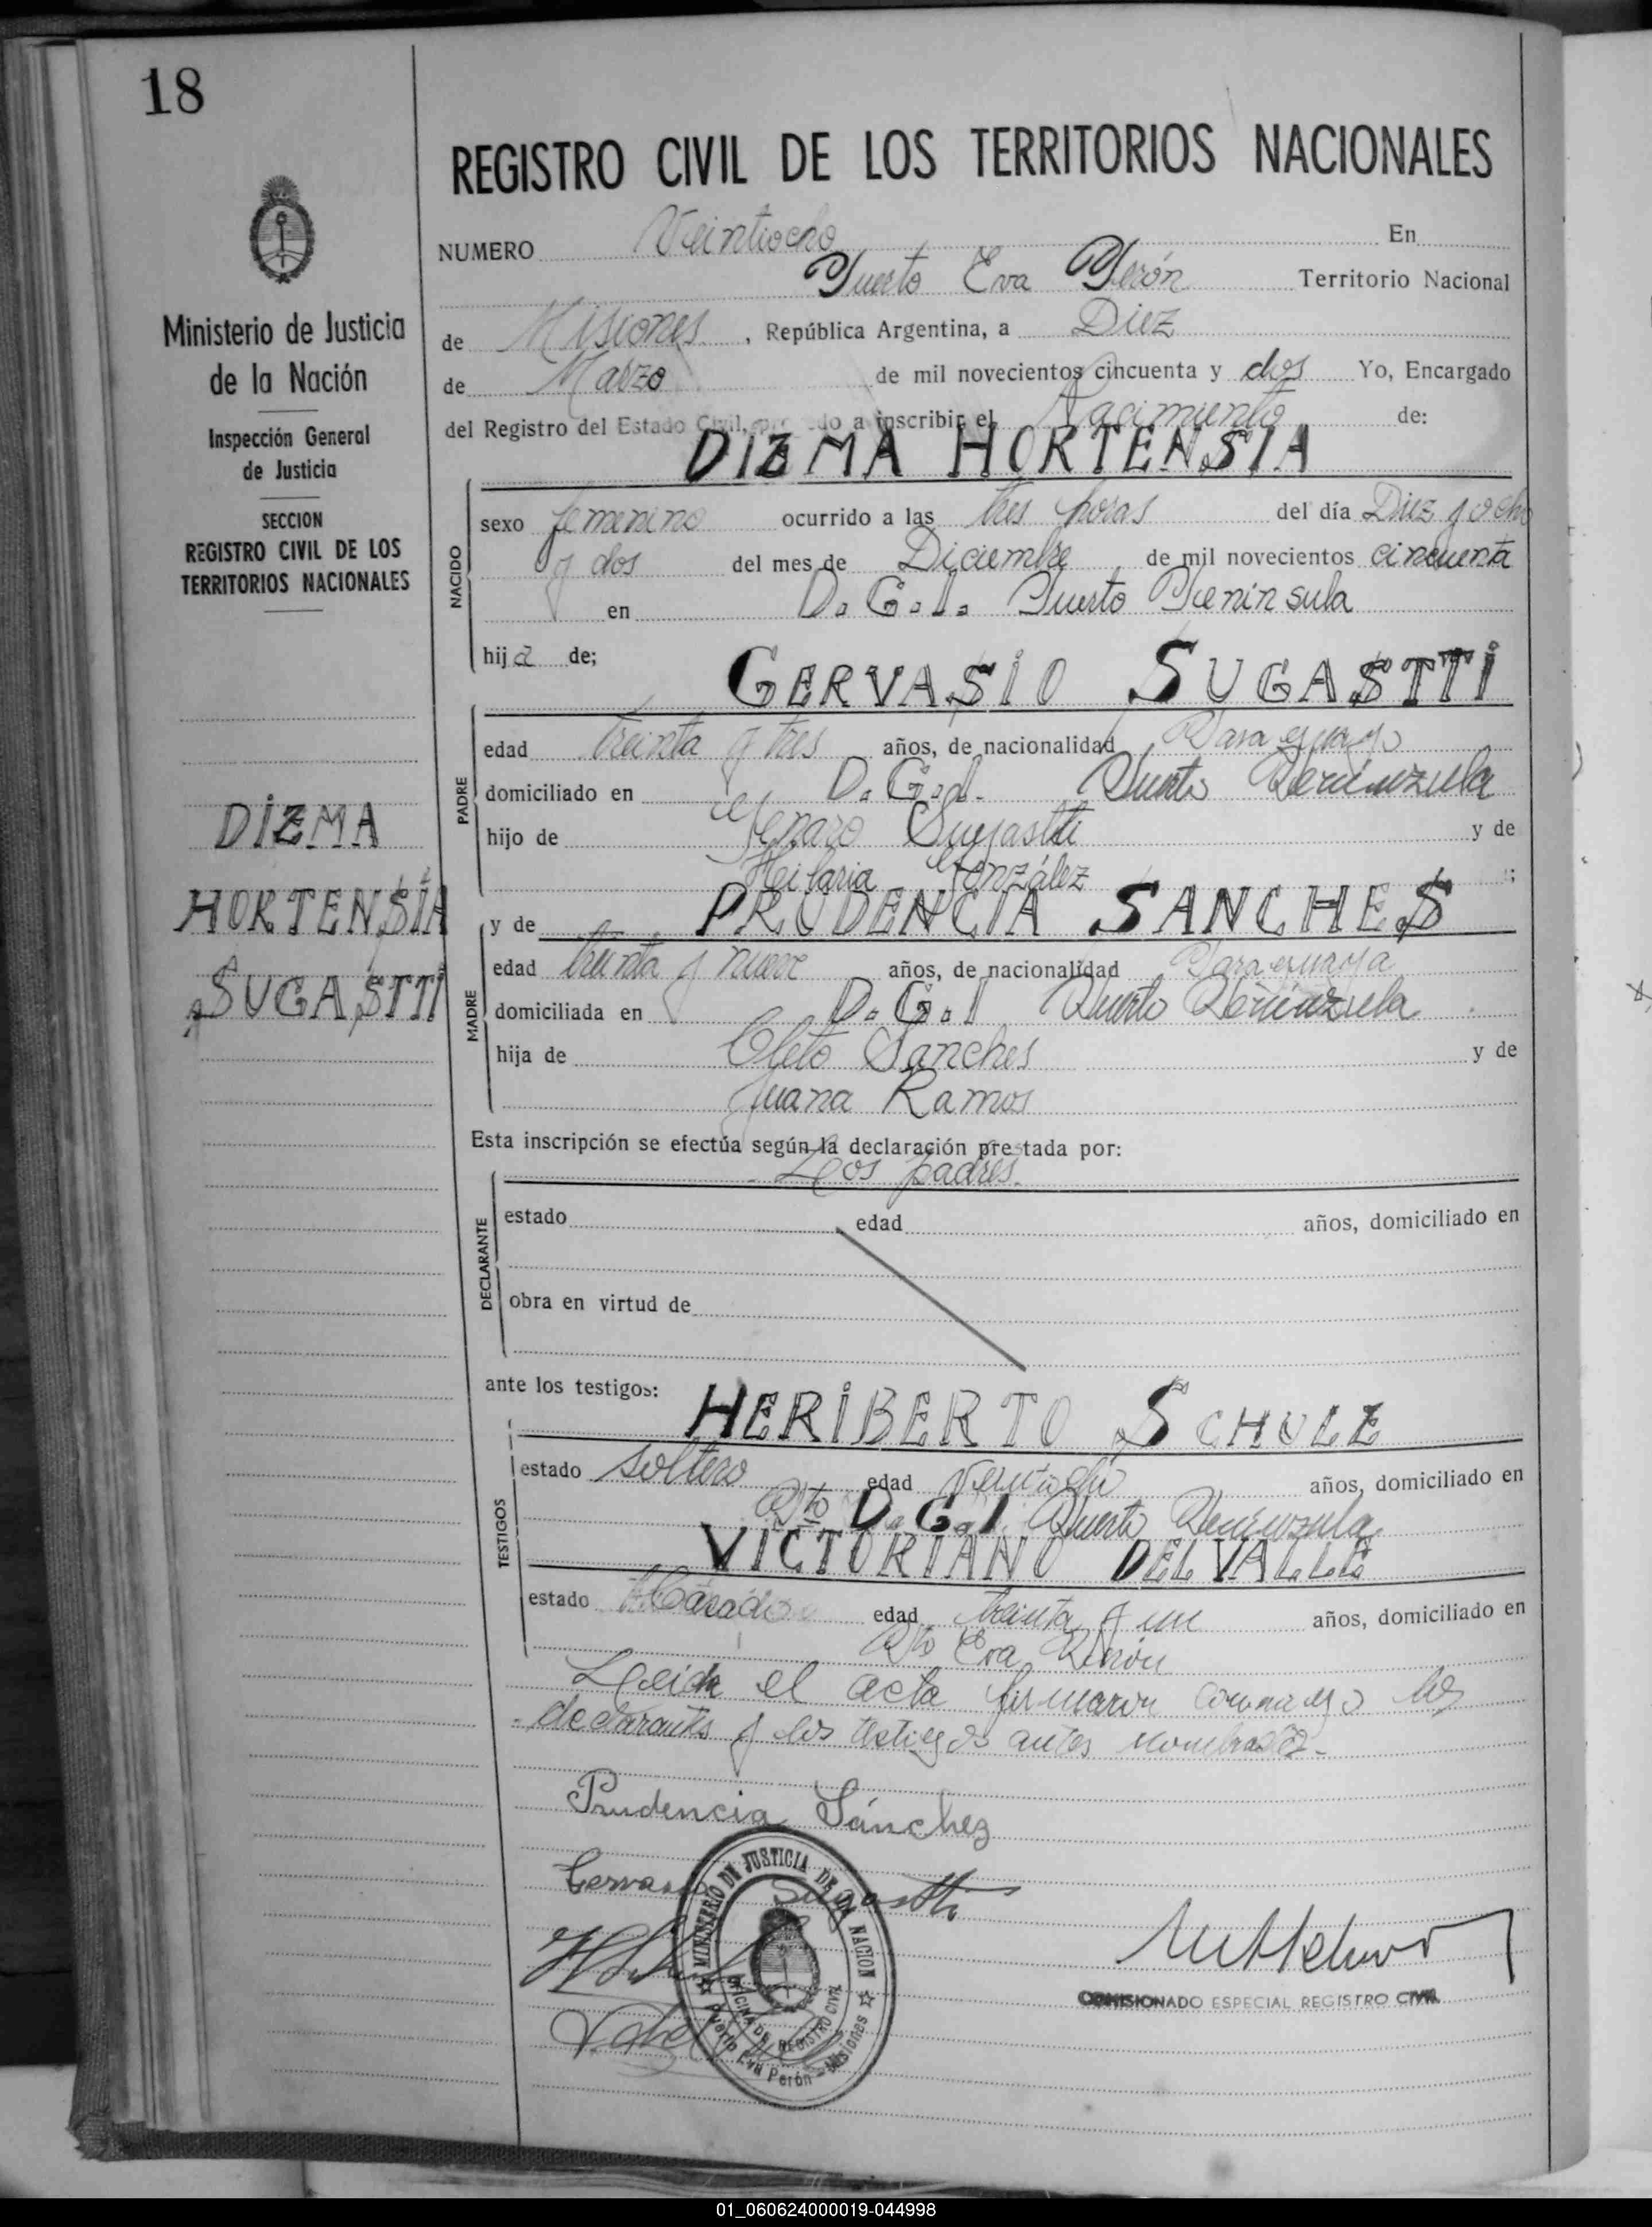 18
REGISTRO CIVIL DE LOS TERRITORIOS NACIONALES
NUMERO Veintiocho En
Puerto Eva Perón Territorio Nacional
de Misiones, República Argentina, a Diez
de Marzo de mil novecientos cincuenta y dos Yo, Encargado
del Registro del Estado Civil, procedo a inscribir el Nacimiento de:
DIZMA HORTENSIA
NACIDO
sexo femenino ocurrido a las tres horas del día Diez y ocho
del mes de Diciembre de mil novecientos cincuenta
y dos en D.G.I. Puerto Peninsula
hija de;
GERVASIO SUGASTTI
PADRE
edad treinta y tres años, de nacionalidad Paraguayo
domiciliado en D.G.I. Puerto Peninzula
hijo de Jenaro Sugastti y de
Heilaria González ;
y de PRUDENCIA SANCHES
MADRE
edad treinta y nueve años, de nacionalidad Paraguaya
domiciliada en D.G.I Puerto Peninzula
hija de Cleto Sanches y de
Juana Ramos
Esta inscripción se efectúa según la declaración prestada por:
Los padres.
DECLARANTE
estado edad años, domiciliado en
obra en virtud de
ante los testigos:
HERIBERTO SCHULZ
TESTIGOS
estado soltero edad años, domiciliado en
Pto D.G.I Puerto Peninzula
VICTORIANO DELVALLE
estado Casado edad treinta y un años, domiciliado en
Pto Eva Perón
Leida el acta firmaron conmigo los
declarantes y los testigos antes nombrados.
Prudencia Sánchez
Gervasio Sugastti
MINISTERIO DE JUSTICIA DE LA NACION
OFICINA DE REGISTRO CIVIL
Puerto Eva Perón - Misiones
COMISIONADO ESPECIAL REGISTRO CIVIL
Ministerio de Justicia
de la Nación
Inspección General
de Justicia
SECCION
REGISTRO CIVIL DE LOS
TERRITORIOS NACIONALES
DIZMA
HORTENSIA
SUGASTTI
01_060624000019-044998